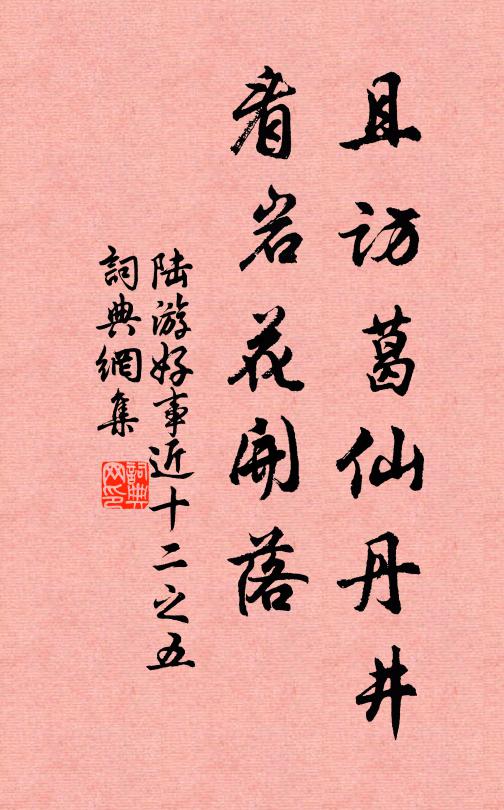 且访葛仙丹井
看岩花开落
陆游好事近十二之五
詞典網集
詞典网印